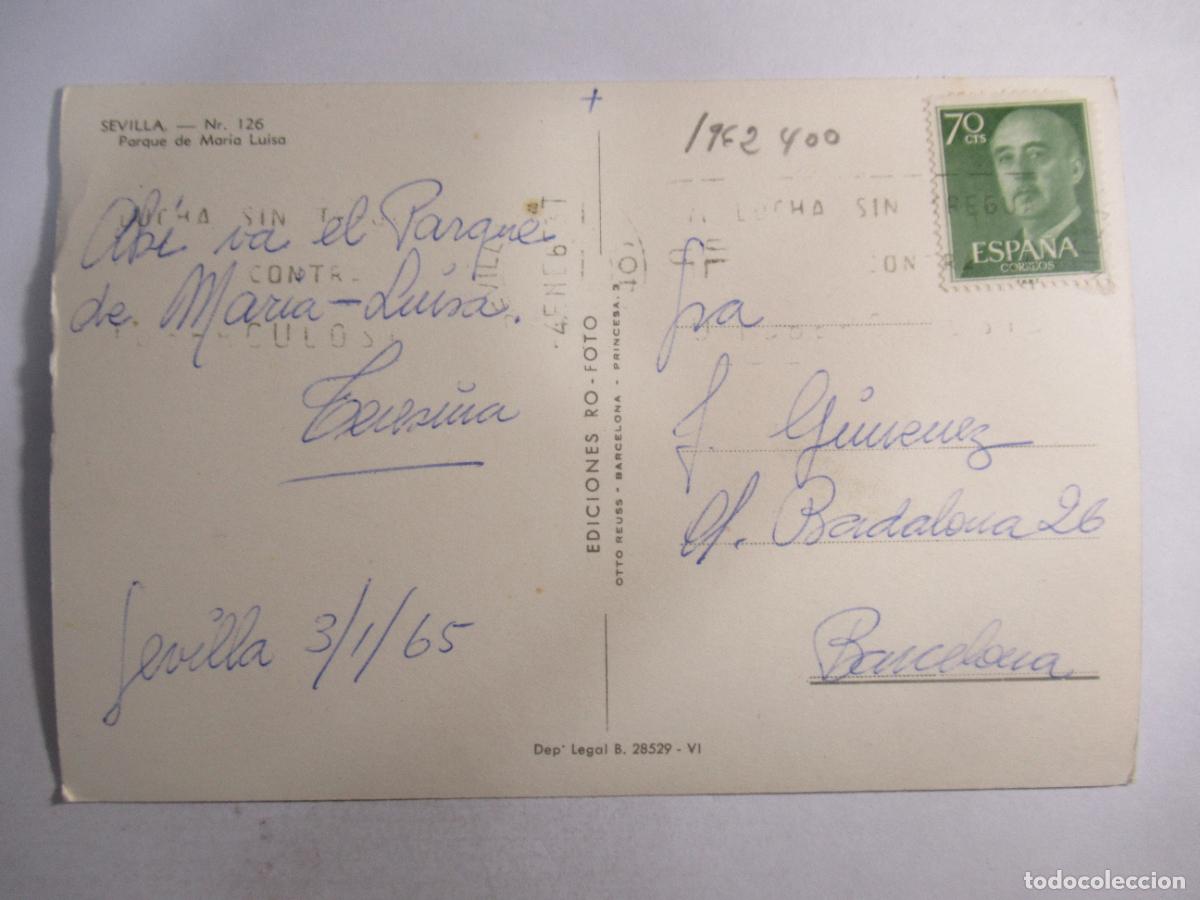 SEVILLA. — Nr. 126
Parque de Maria Luisa
Ahí va el Parque
de María-Luisa.
Teresina
Sevilla 3/1/65
LUCHA SIN
CONTRA
CULOS
SEVILLA
4 ENE 6
EDICIONES RO-FOTO
OTTO REUSS - BARCELONA - PRINCESA, 3
Depᵗ Legal B. 28529 - VI
1962 400
70 CTS
ESPAÑA
CORREOS
LUCHA SIN TREGUA
CONTRA
Sra
J. Gimenez
C/. Badalona 26
Barcelona
todocoleccion